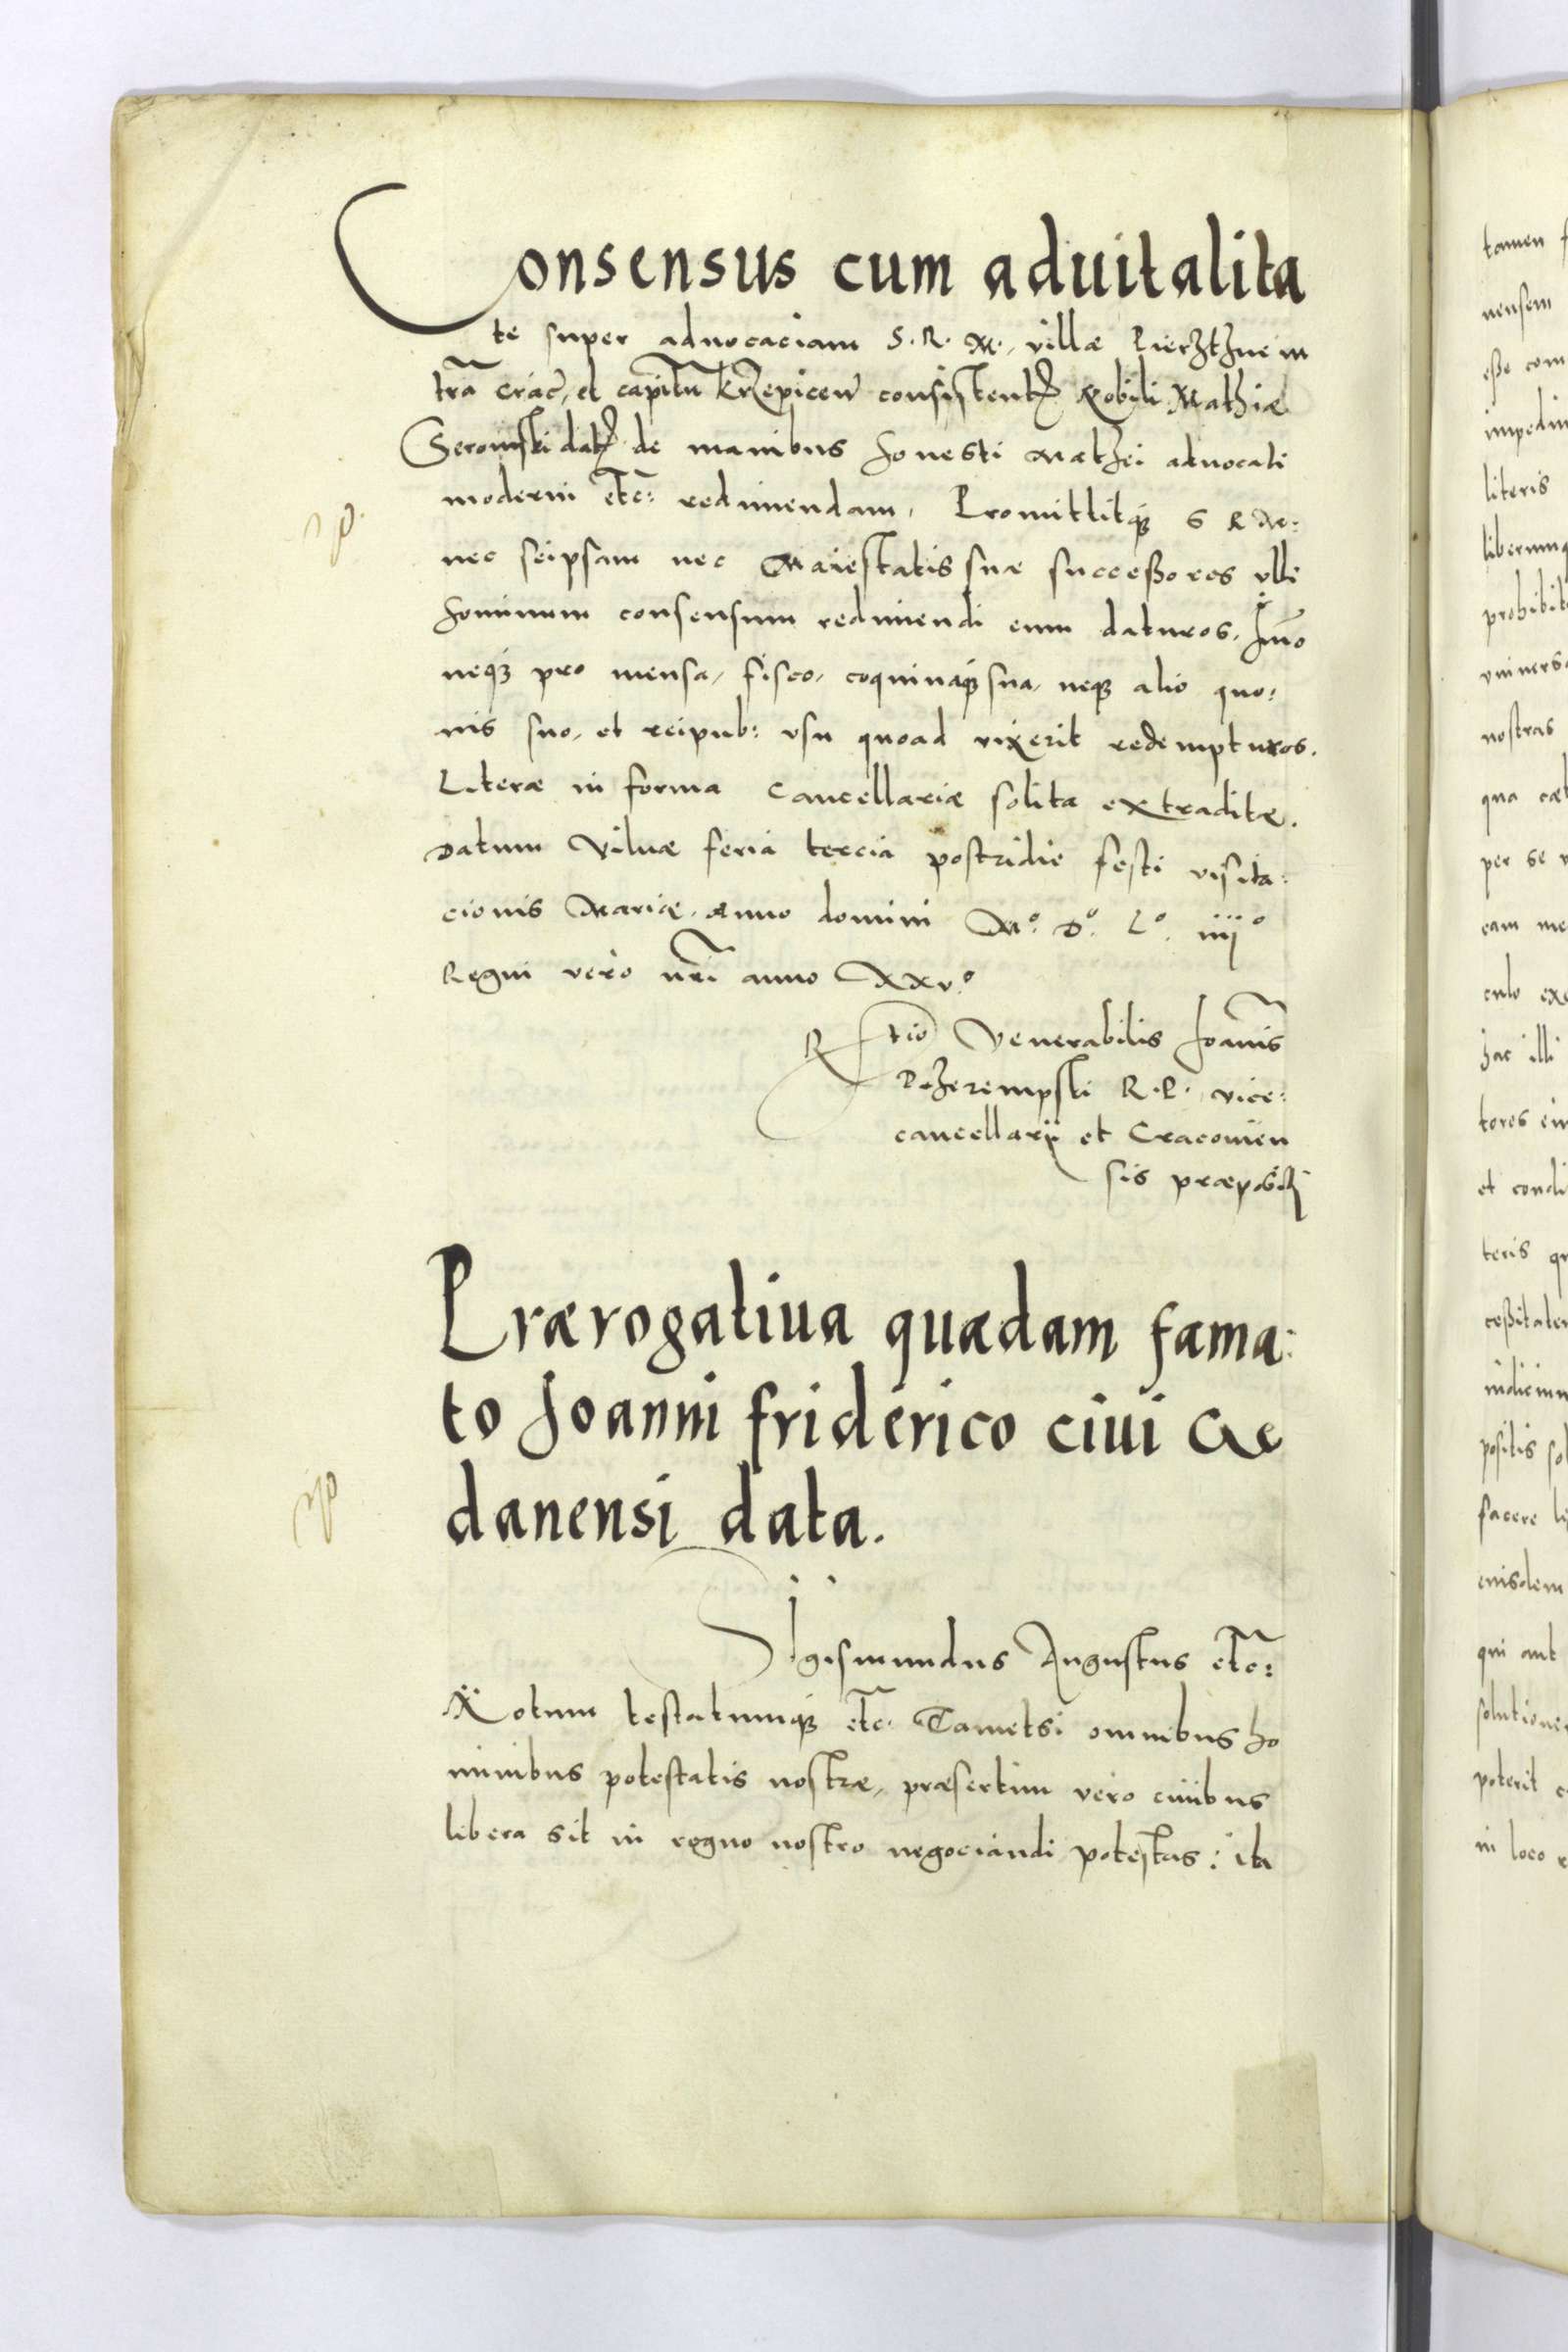 Consensus cum aduitalita
te super aduocaciam S. R. M. villæ Pierzchne in
tra Crac, et capitu Krzepicen consistentem Nobili Mathiæ
Seromski datus de manibus honesti Mathei aduocati
moderni etc: redimendam, Promittitque S R M:
nec seipsam nec Maiestatis suæ successores vlli
hominum consensum redimendi eum daturos, Imo
neque pro mensa, fisco, coquinaque sua, neque alio quo:
uis suo, et reipub: vsu quoad vixerit redempturos.
Literæ in forma Cancellariæ solita extraditæ.
Datum Vilnæ feria tercia postridie festi visita:
cionis Mariæ, anno domini Mº. Dº. Lº. iiijº
Regni vero nri anno XXvº.
Rtio Venerabilis Joannis
Przerempski R. P. vice:
cancellarij et Cracouien
sis præpositi
Prærogatiua quædam fama:
to Joanni friderico ciui Ge
danensi data.
Sigismundus Augustus etc:
Notum testatumque etc. Tametsi omnibus ho
minibus potestatis nostræ, præsertim vero ciuibus
libera sit in regno nostro negociandi potestas: ita
tamen
uensem
esse com
impedim
literis
liberumq
prohibit
vniuers
nostras
qua
per se
eam me
culo exe
hac illi
tores
et condi
teris
cessitate
indicium
positis so
facere
eiusdem
qui aut
solutione
poterit
in loco